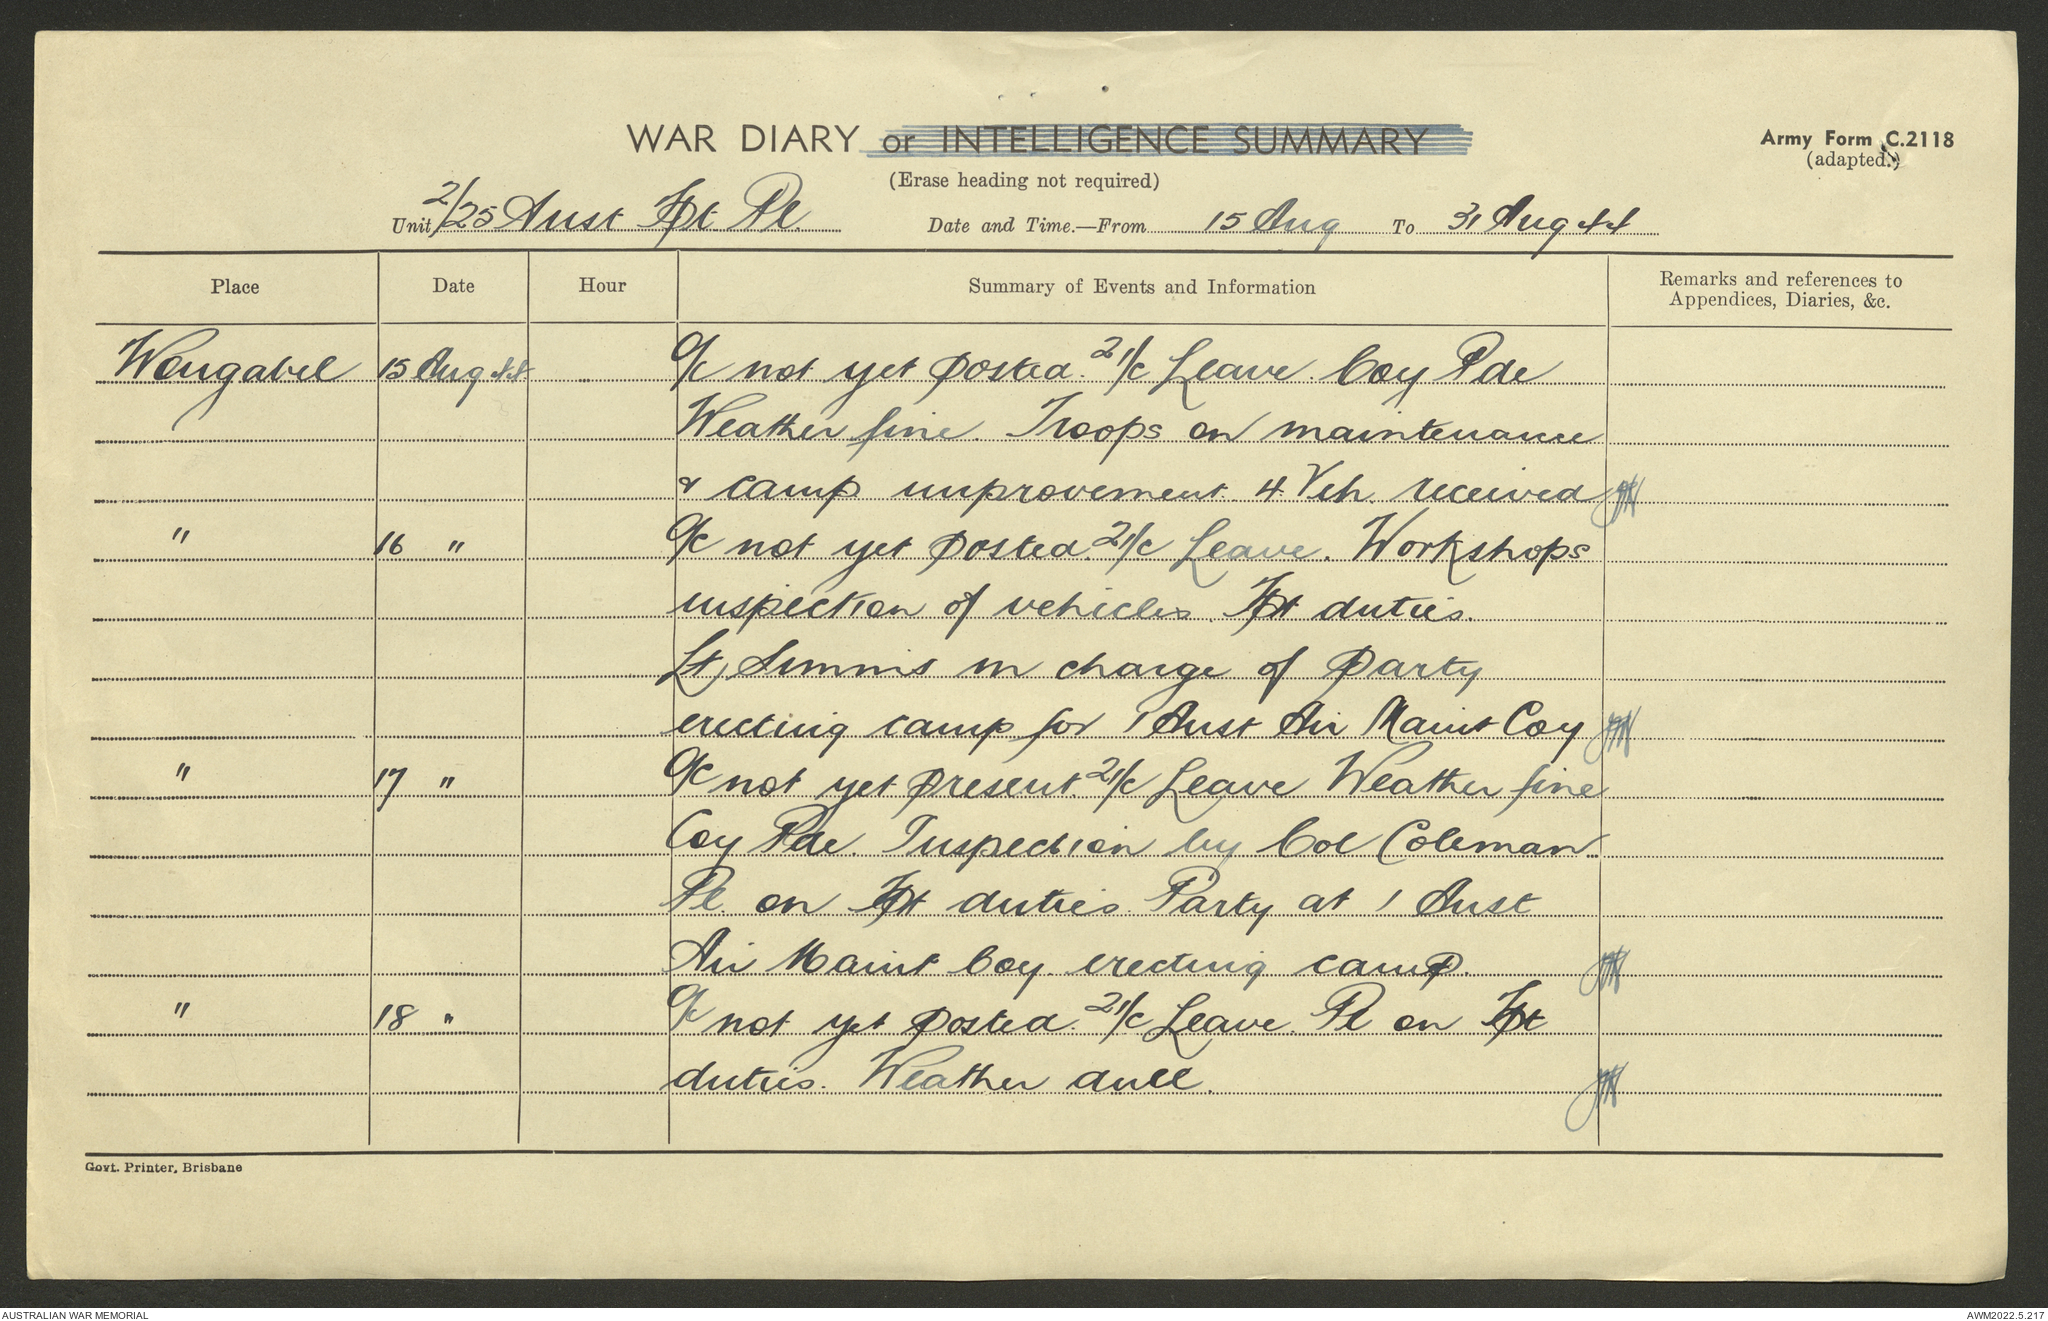 WAR DIARY or INTELLIGENCE SUMMARY
Army Form C.2118
(adapted.)
(Erase heading not required)
Unit 2/25 Aust Tpt Pl. Date and Time.—From 15 Aug To 31 Aug 44
Place Date Hour Summary of Events and Information Remarks and references to
Appendices, Diaries, &c.
Wongabel 15 Aug 44 O/C not yet posted. 2 I/c Leave. Coy Pde
Weather fine. Troops on maintenance
& camp improvement. 4 Veh. received
" 16 " O/C not yet posted. 2 I/c Leave. Workshops
inspection of vehicles. Tpt duties.
Lt Simms in charge of party
erecting camp for 1 Aust Air Maint Coy
" 17 " O/C not yet present. 2 I/c Leave Weather fine
Coy Pde. Inspection by Col Coleman.
Pl. on Tpt duties. Party at 1 Aust
Air Maint Coy. erecting camp.
" 18 " O/C not yet posted. 2 I/c Leave. Pl on Tpt
duties. Weather dull.
Govt. Printer, Brisbane
AUSTRALIAN WAR MEMORIAL
AWM2022.5.217